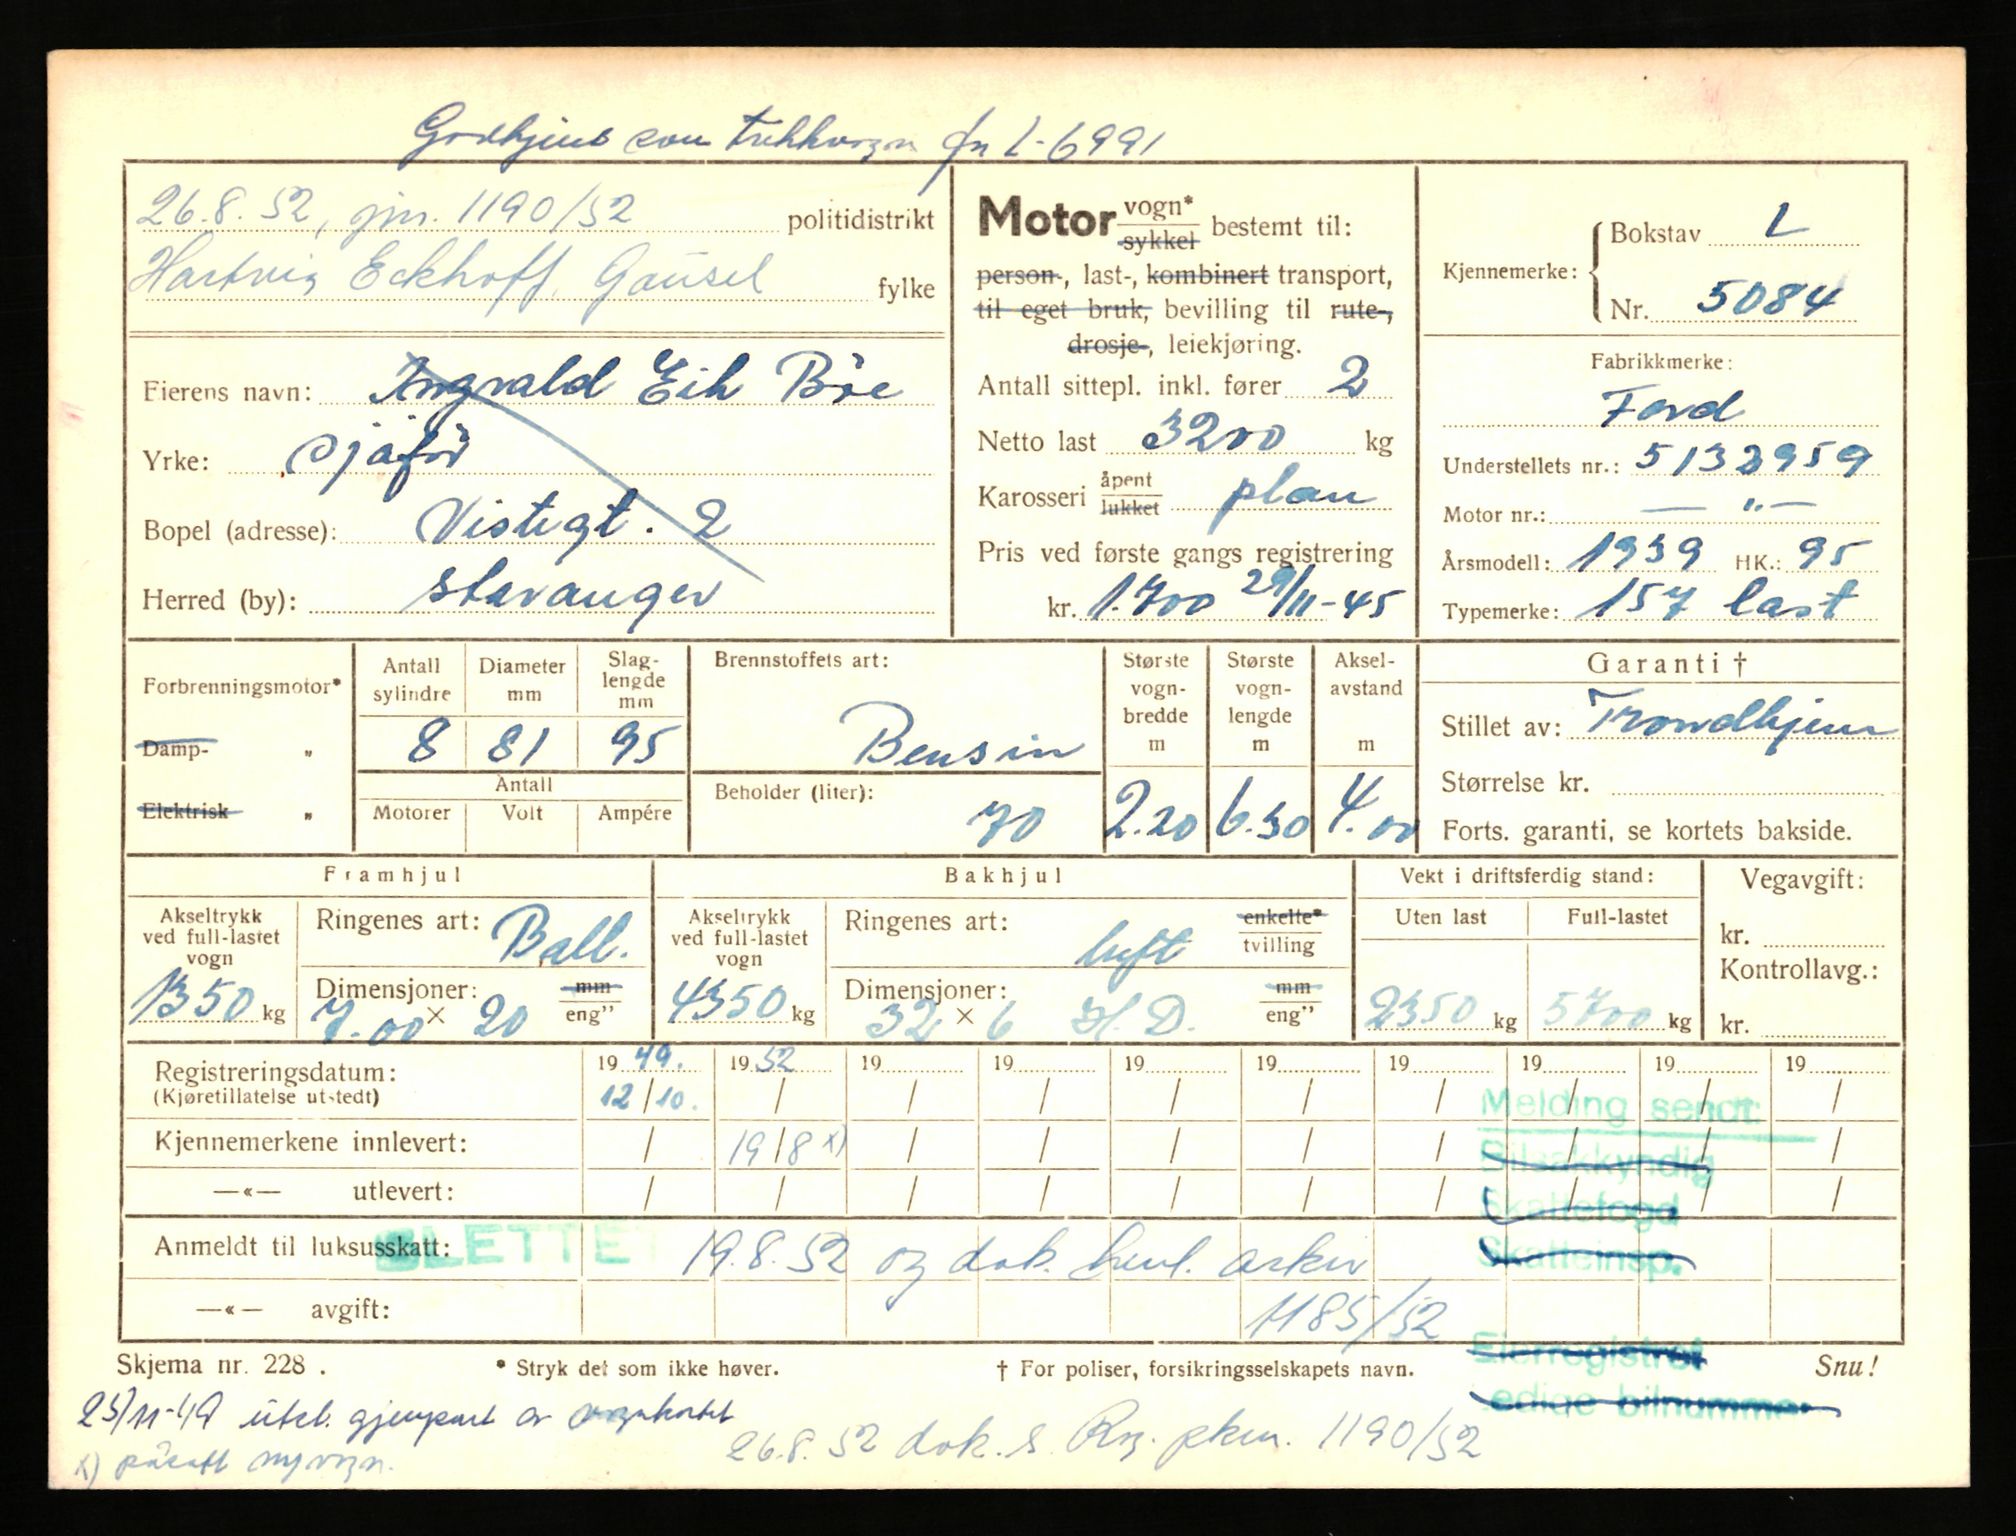 Godkjent som trekkvogn for L-6991
26.8.52, jnr. 1190/52 politidistrikt
Hartvig Eckhoff, Gausel fylke
Eierens navn: Ingvald Eik Bøe
Yrke: sjåfør
Bopel (adresse): Vistegt. 2
Herred (by): Stavanger
Motor vogn* sykkel bestemt til:
person-, last-, kombinert transport,
til eget bruk, bevilling til rute-,
drosje-, leiekjøring.
Antall sittepl. inkl. fører 2
Netto last 3200 kg
Karosseri åpent lukket plan
Pris ved første gangs registrering
kr. 1.700 29/11-45
Kjennemerke: Bokstav L
Nr. 5084
Fabrikkmerke:
Ford
Understellets nr.: 5132959
Motor nr.: — " —
Årsmodell: 1939 HK.: 95
Typemerke: 157 last
Forbrenningsmotor*
Damp- "
Elektrisk "
Antall sylindre Diameter mm Slaglengde mm
8 81 95
Antall
Motorer Volt Ampére
Brennstoffets art:
Bensin
Beholder (liter):
70
Største vognbredde m
2.20
Største vognlengde m
6.30
Akselavstand m
4.00
Garanti †
Stillet av: Trondhjem
Størrelse kr.
Forts. garanti, se kortets bakside.
Framhjul
Akseltrykk ved full-lastet vogn
1350 kg
Ringenes art: Ball.
Dimensjoner: mm
7.00 × 20 eng"
Bakhjul
Akseltrykk ved full-lastet vogn
4350 kg
Ringenes art: luft enkelte* tvilling
Dimensjoner: mm
32 × 6 H.D. eng"
Vekt i driftsferdig stand:
Uten last Full-lastet
2350 kg 5700 kg
Vegavgift:
kr.
Kontrollavg.:
kr.
Registreringsdatum: 19 49. 19 52 19 19 19 19 19 19 19 19
(Kjøretillatelse utstedt) 12/10. / / / / / / / / /
Kjennemerkene innlevert: / 19/8 x) / / / / / / / /
—«— utlevert: / / / / / / / / / /
Melding sendt:
Bilsakkyndig
Skattefogd
Skatteinsp.
Eierregistret
Ledige bilnummer
Anmeldt til luksusskatt: SLETTET 19.8.52 og dok. henl. arkiv
—«— avgift: 1185/52
Skjema nr. 228. * Stryk det som ikke høver. † For poliser, forsikringsselskapets navn. Snu!
25/11-49 utst. gjenpart av vognkortet
26.8.52 dok. s. Rog. pkm. 1190/52
x) påsatt ny vogn.